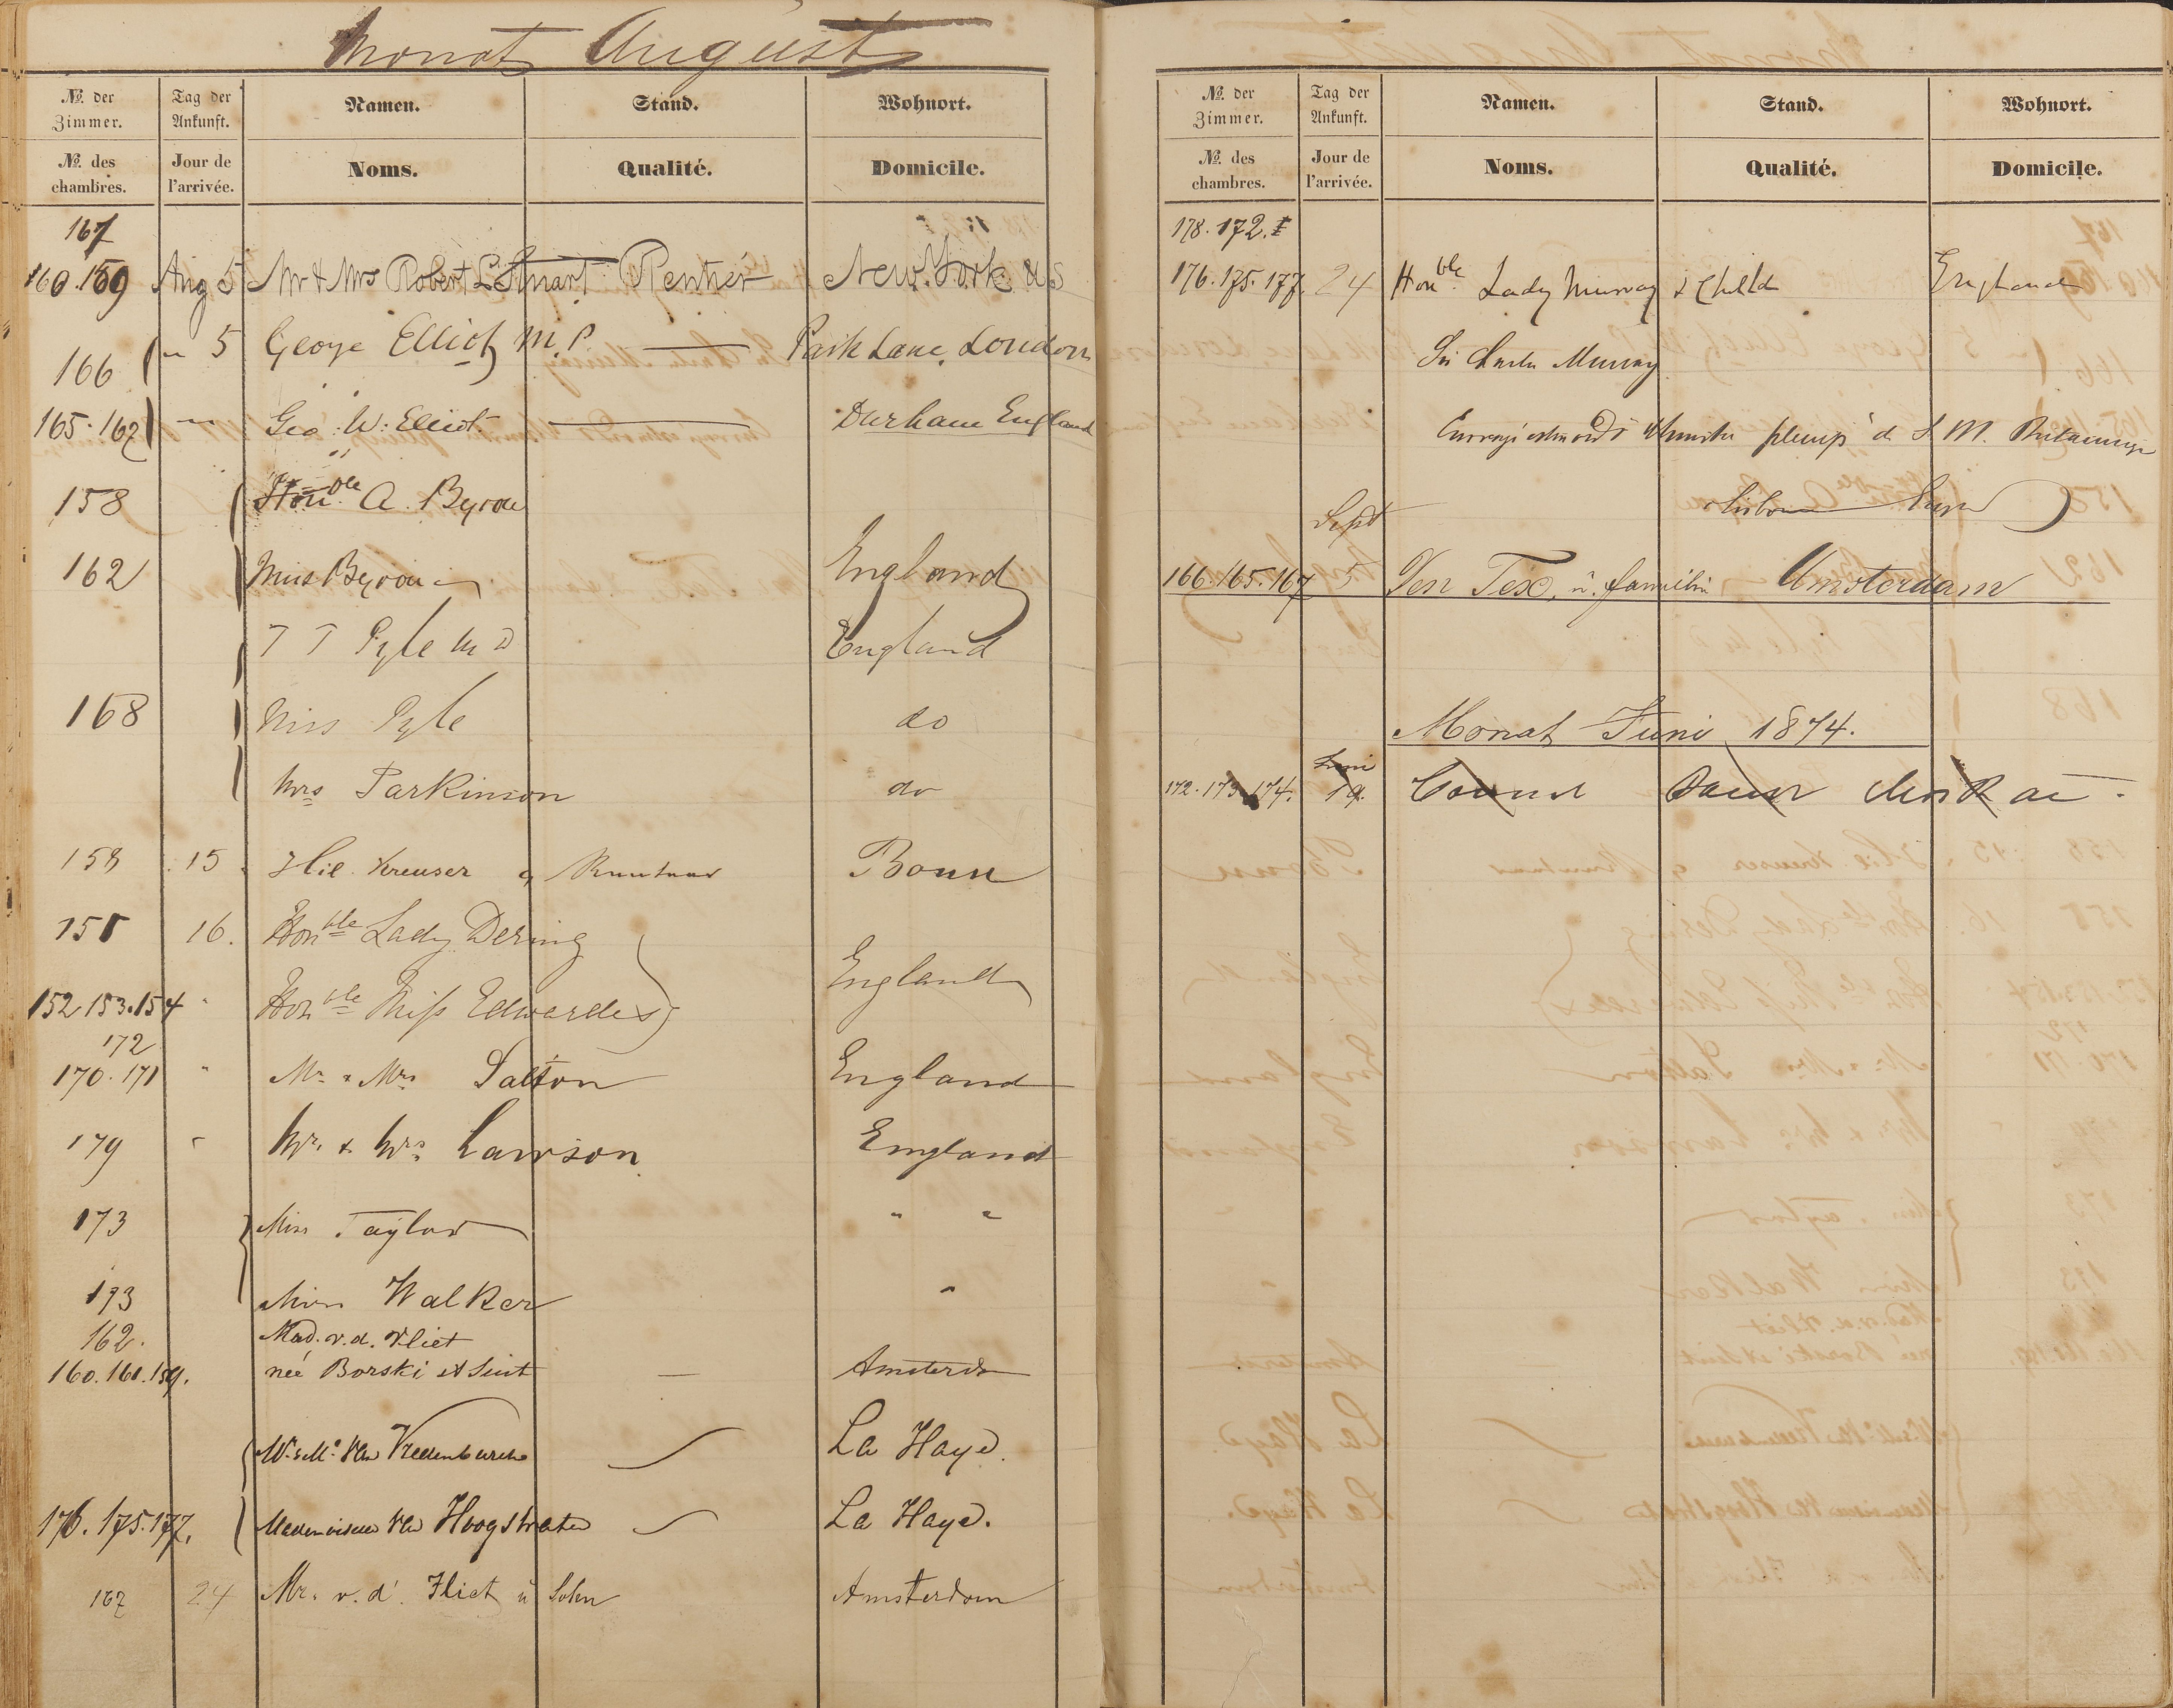 Monat August
No. der Zimmer. Tag der Ankunft. Namen. Stand. Wohnort.
No. des chambres. Jour de l'arrivée. Noms. Qualité. Domicile.
167
160.159 Aug 5 Mr & Mrs Robert L Stuart Rentier New York U S
166 " 5 George Elliot M.P. Park Lane, London
165.167 " Geo: W: Elliot Durham England
158 Honble A. Byron
162 Miss Byron England
T T Pyle M D England
168 Miss Pyle do
Mrs Parkinson do
158 15 Kreuser Rentner Bonn
155 16. Honble Lady Dering
152.153.154 " Honble Miss Edwardes England
172
170.171 " Mr & Mrs Salton England
179 " Mr. & Mrs. Lawson England
173 Miss Taylor " "
193 Miss Walker "
162. Mad. v.d. Vliet
160.161.159. née Borski et Suit — Amsterdam
Mr & Me Van Vredenburch La Haye.
176.175.177. Mademoiselle Van Hoogstraten La Haye.
167 24 Mr. v. d. Vliet u Sohn Amsterdam
No. der Zimmer. Tag der Ankunft. Namen. Stand. Wohnort.
No. des chambres. Jour de l'arrivée. Noms. Qualité. Domicile.
178.172.
176.175.177. 24 Honble Lady Murray & Child England
Sir Charles Murray
Envoyé extraord. & Ministre plenip. de S. M. Britannique
Lisbonne
Sept
166.165.167 5 Den Tex, u. familie Amsterdam
Monat Juni 1874.
Juni
172.173.174. 19.